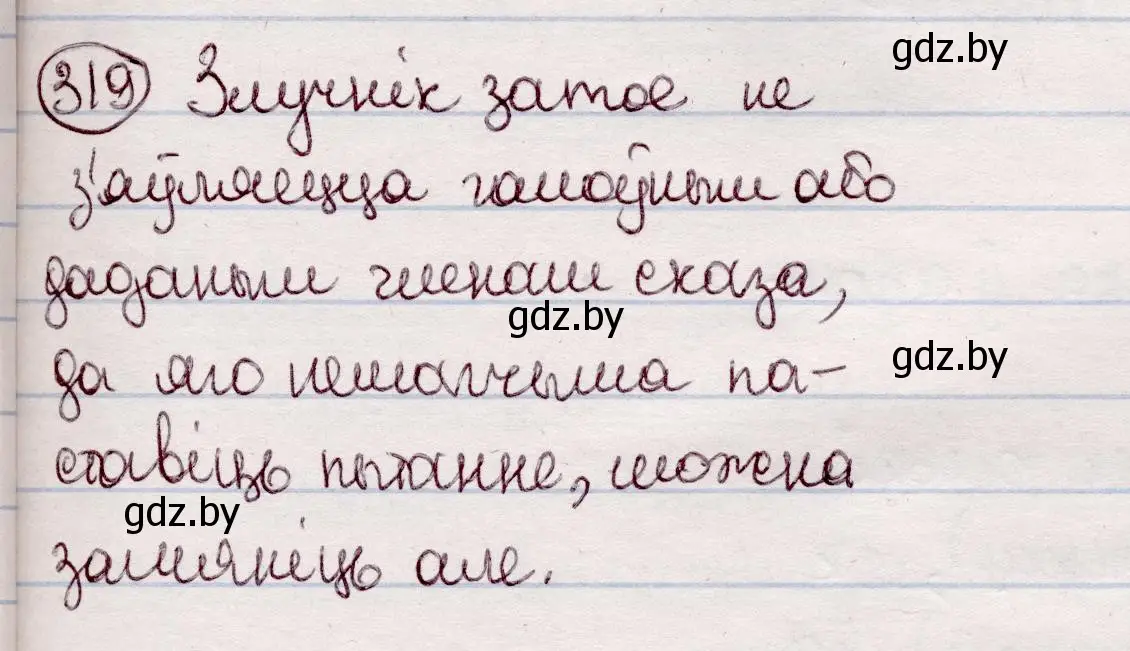 gdz.by
319 Злучнік затое не
з'яўляецца галоўным або
даданым членам сказа,
gdz.by
gdz.by
да яго немагчыма па-
ставіць пытанне, можна
gdz.by
замяніць але.